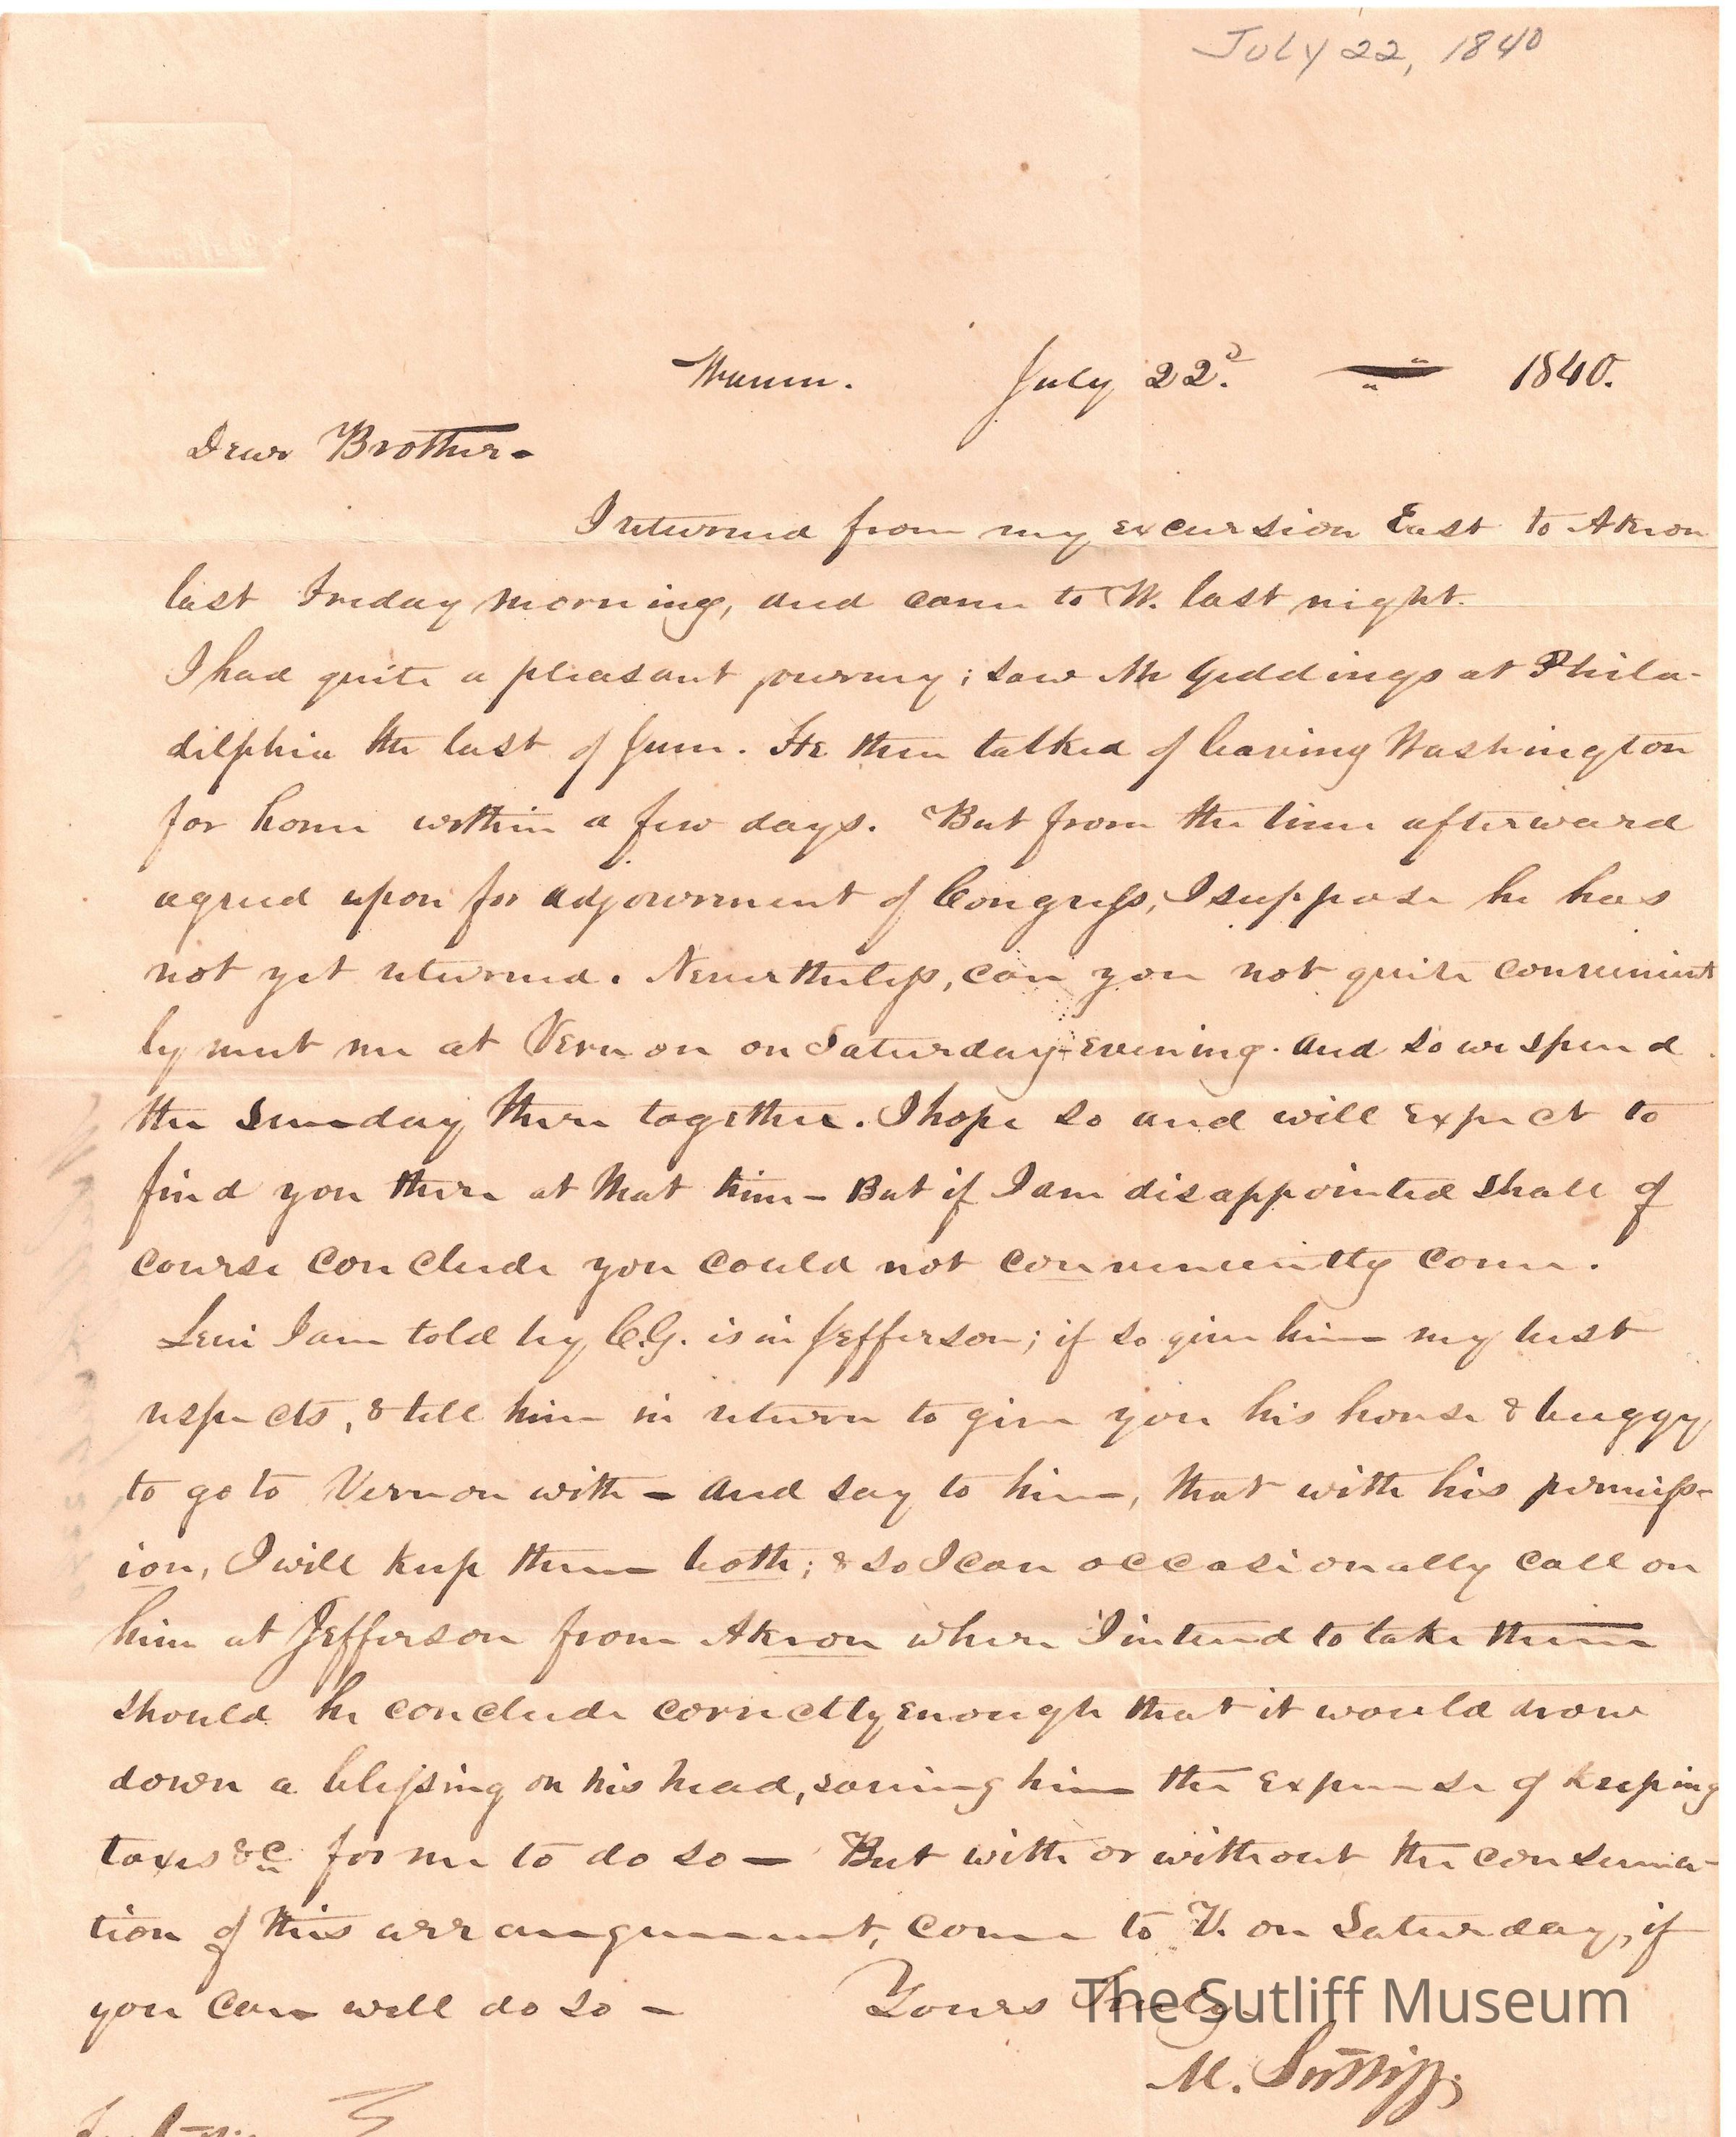 July 22, 1840
Warren. July 22d. 1840.
Dear Brother-
I returned from my excursion East to Akron
last Friday morning, and came to W. last night.
I had quite a pleasant journey; saw Mr Giddings at Phila-
delphia the last of June. He then talked of leaving Washington
for home within a few days. But from the time afterward
agreed upon for adjournment of Congress, I suppose he has
not yet returned. Nevertheless, can you not quite convenient
ly meet me at Vernon on Saturday-evening. and so we spend
the Sunday there together. I hope so and will expect to
find you there at that time- But if I am disappointed shall of
course conclude you could not conveniently come.
Levi I am told by C.G. is in Jefferson; if so give him my best
respects, & tell him in return to give you his horse & buggy
to go to Vernon with - and say to him, that with his permiss-
ion, I will keep them both; & so I can occasionally call on
him at Jefferson from Akron where I intend to take them
should he conclude correctly enough that it would draw
down a blessing on his head, saving him the expense of keeping
taxes &c for me to do so - But with or without the consuma-
tion of this arrangement, come to V. on Saturday, if
you can well do so -
Yours Truly
The Sutliff Museum
M. Sutliff;